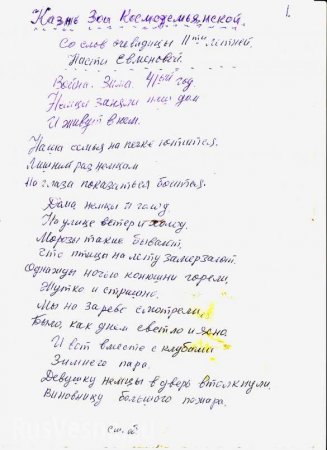 1.
Казнь Зои Космодемьянской.
Со слов очевидицы 11ти летней
Насти Евменовой.
Война. Зима. 41ый год.
Немцы заняли наш дом
И живут в нем.
Наша семья на печке ютится.
Лишний раз немцам
На глаза показаться боится.
Дома немцы и голод,
На улице ветер и холод.
Морозы такие бывают,
Что птицы на лету замерзают.
Однажды ночью конюшни горели,
Жутко и страшно.
Мы на зарево смотрели,
Было, как днем светло и ясно
И вот вместе с клубами
Зимнего пара.
Девушку немцы в дверь втолкнули.
Виновницу большого пожара.
См. об